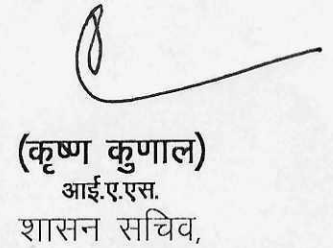 (कृष्ण कुणाल)
आई.ए.एस.
शासन सचिव,